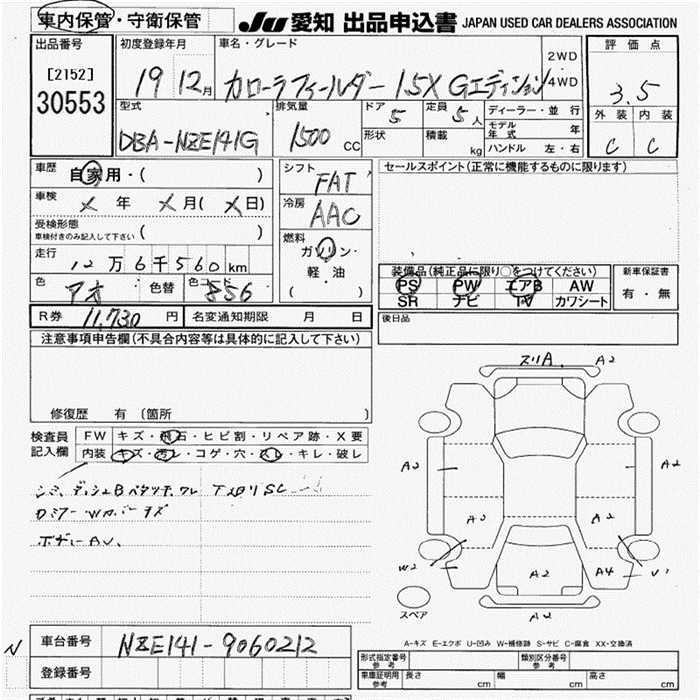 車内保管・守衛保管
JU 愛知 出品申込書 JAPAN USED CAR DEALERS ASSOCIATION
出品番号
[2152]
30553
初度登録年月
19 12月
車名・グレード
カローラフィールダー 1.5X Gエディション
2WD
4WD
評価点
3.5
外装 内装
C C
型式
DBA-NZE141G
排気量
1500 CC
ドア 5
形状
定員 5人
積載 kg
ディーラー・並行
モデル年式 年
ハンドル 左・右
車歴
自家用・( )
車検
X 年 X 月 ( X 日)
受検形態
車検付きのみ記入して下さい ( )
走行
12万6千560km
色 アオ 色替 色コード 8S6
シフト
FAT
冷房
AAC
燃料
ガソリン・
軽油
( )
セールスポイント(正常に機能するものに限ります)
装備品(純正品に限り○をつけてください)
PS PW エアB AW
SR ナビ TV カワシート
新車保証書
有・無
R券 11,730 円 名変通知期限 月 日
後日品
注意事項申告欄(不具合内容等は具体的に記入して下さい)
修復歴 有 (箇所 )
検査員
記入欄
FW キズ・飛石・ヒビ割・リペア跡・X要
内装 キズ・汚レ・コゲ・穴・スレ・キレ・破レ
シミ ダッシュB ベタツキ ワレ
ボデーAU.
スリA A2
A2
A2
A2
A2
W2
A2
A4
U1
A2
スペア
A-キズ E-エクボ U-凹み W-補修跡 S-サビ C-腐食 XX-交換済
N
車台番号 NZE141-9060212
登録番号
形式指定番号
参考
類別区分番号
参考
車庫証明用
参考
長さ cm 幅 cm 高さ cm